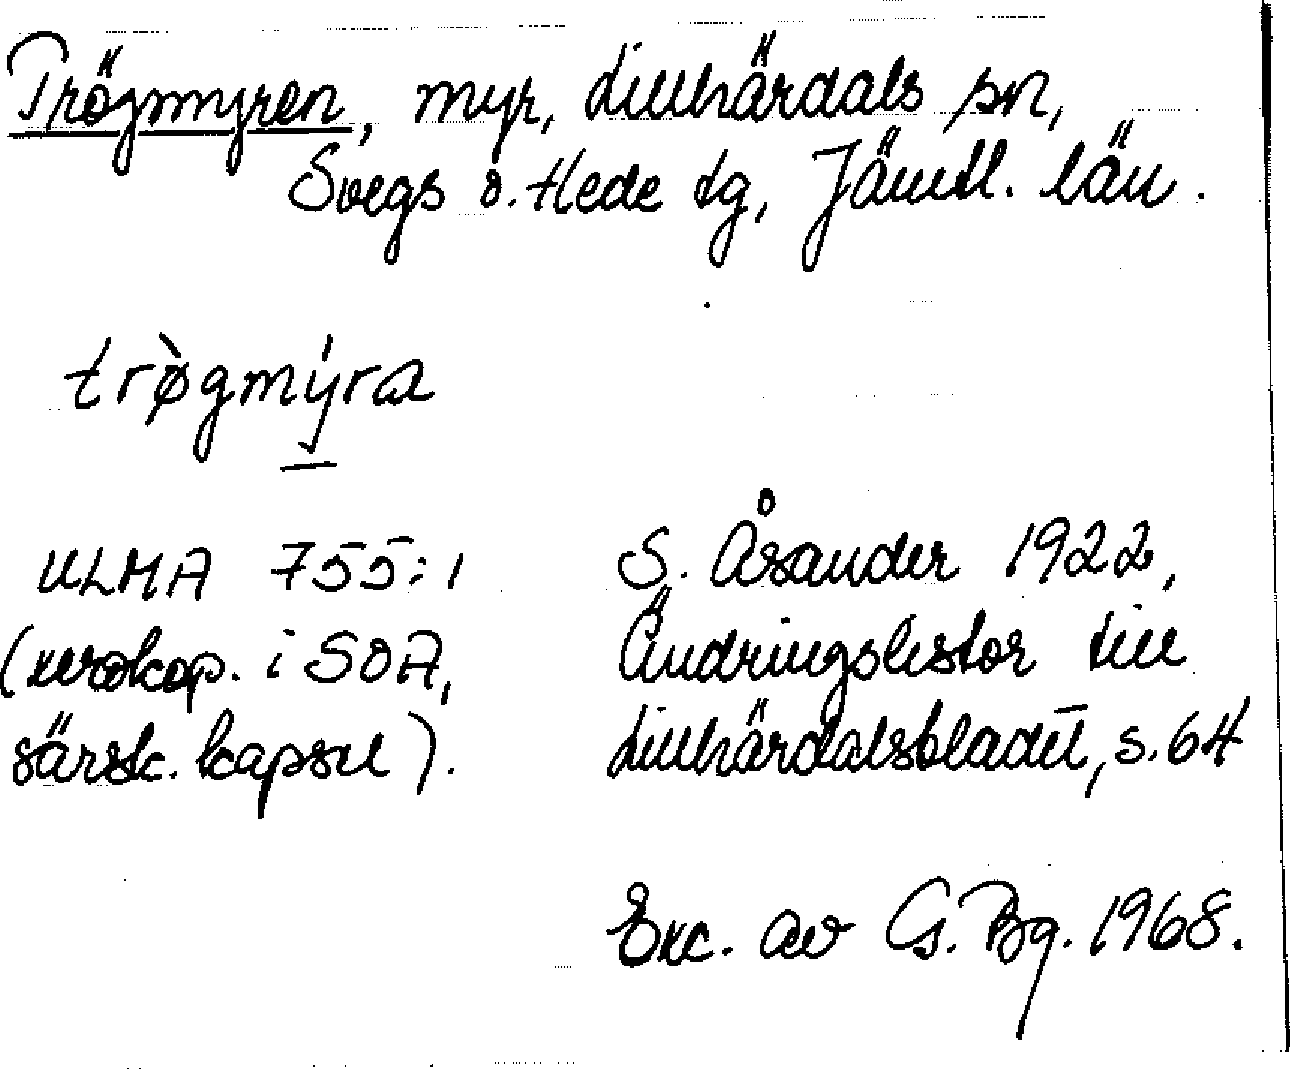 Trögmyren, myr, Lillhärdals sn,
Svegs o. Hede tg, Jämtl. län.
trø̀gmýra
ULMA 755:1
(xerokop. i SOA,
särsk. kapsel).
S. Åsander 1922,
Ändringslistor till
Lillhärdalsbladet, s. 64
Exc. av G. Bg. 1968.